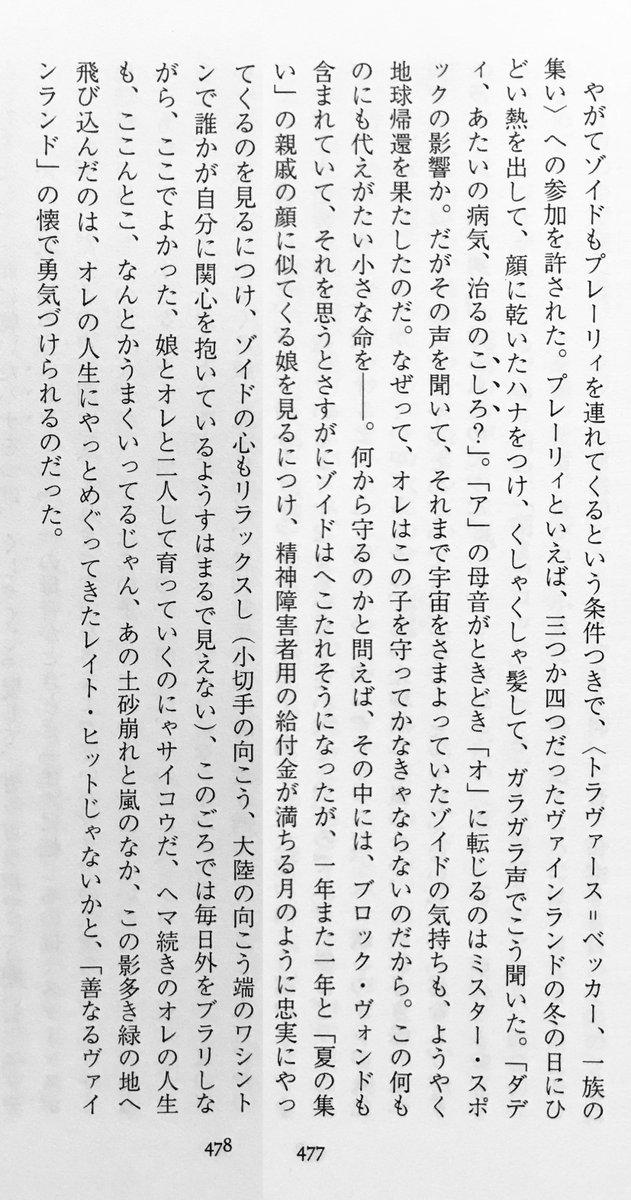 やがてゾイドもプレーリィを連れてくるという条件つきで、〈トラヴァース＝ベッカー、一族の
集い〉への参加を許された。プレーリィといえば、三つか四つだったヴァインランドの冬の日にひ
どい熱を出して、顔に乾いたハナをつけ、くしゃくしゃ髪して、ガラガラ声でこう聞いた。「ダデ
ィ、あたいの病気、治るのこしろ？」。「ア」の母音がときどき「オ」に転じるのはミスター・スポ
ックの影響か。だがその声を聞いて、それまで宇宙をさまよっていたゾイドの気持ちも、ようやく
地球帰還を果たしたのだ。なぜって、オレはこの子を守ってかなきゃならないのだから。この何も
のにも代えがたい小さな命を——。何から守るのかと問えば、その中には、ブロック・ヴォンドも
含まれていて、それを思うとさすがにゾイドはへこたれそうになったが、一年また一年と「夏の集
い」の親戚の顔に似てくる娘を見るにつけ、精神障害者用の給付金が満ちる月のように忠実にやっ
てくるのを見るにつけ、ゾイドの心もリラックスし（小切手の向こう、大陸の向こう端のワシント
ンで誰かが自分に関心を抱いているようすはまるで見えない）、このごろでは毎日外をブラリしな
がら、ここでよかった、娘とオレと二人して育っていくのにゃサイコウだ、ヘマ続きのオレの人生
も、ここんとこ、なんとかうまくいってるじゃん、あの土砂崩れと嵐のなか、この影多き緑の地へ
飛び込んだのは、オレの人生にやっとめぐってきたレイト・ヒットじゃないかと、「善なるヴァイ
ンランド」の懐で勇気づけられるのだった。
477
478